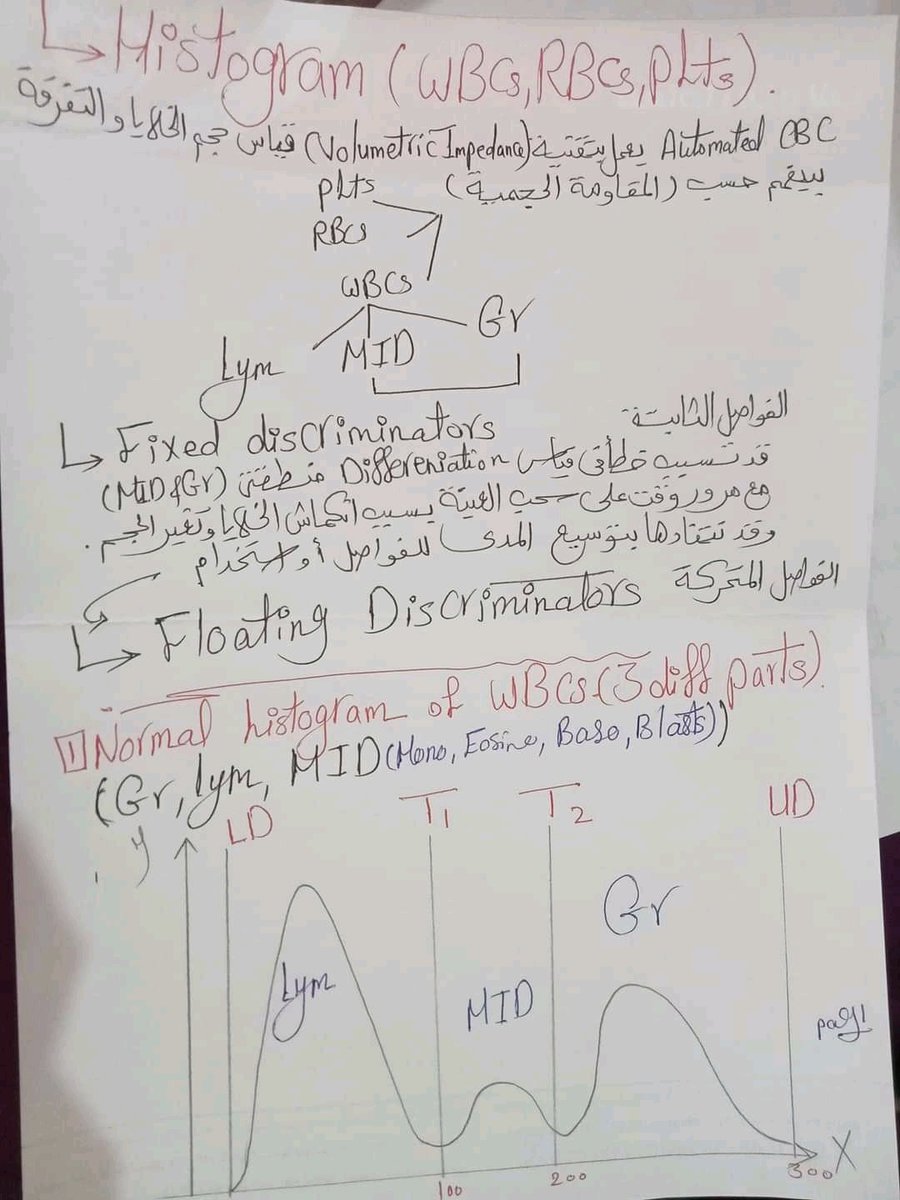 Histogram (WBCs, RBCs, plts).
Automated CBC يعمل بتقنية (Volumetric Impedance) قياس حجم الخلايا والتفرقة
بينهم حسب (المقاومة الحجمية)
plts
RBCs
WBCs
Lym MID Gr
Fixed discriminators الفواصل الثابتة
قد تسبب خطأ في قياس Differeniation منطقتي (MID & Gr)
مع مرور وقت على سحب العينة بسبب انكماش الخلايا وتغير الحجم.
وقد تتفادها بتوسيع المدى للفواصل أو استخدام
Floating Discriminators الفواصل المتحركة
1 Normal histogram of WBCs (3 diff parts).
(Gr, lym, MID (Mono, Eosine, Baso, Blasts))
y LD T1 T2 UD
Gr
Lym MID
page 1
X
100 200 300